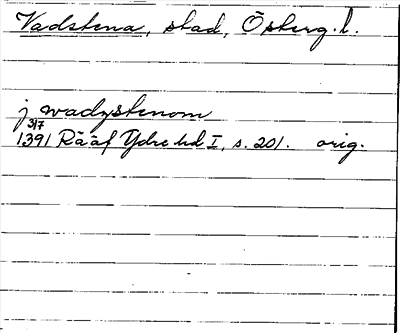 Vadstena, stad, Österg. l.
j wadzstenom
3/7
1391 Rääf Ydre hd I, s. 201. orig.